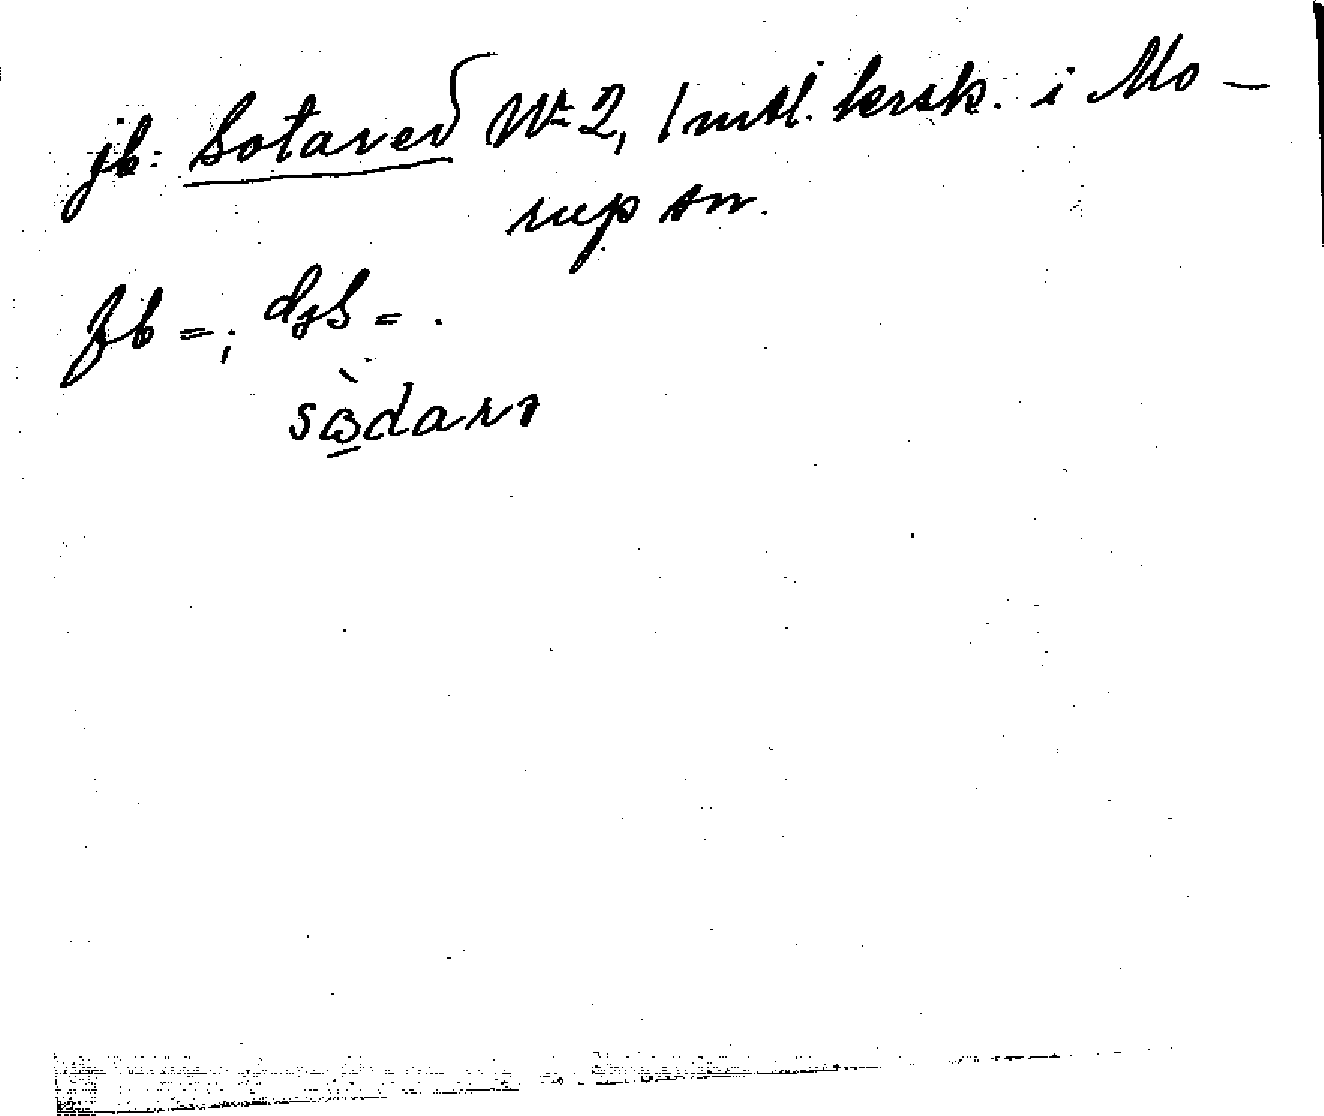 jb: Sotared Nr 2, 1 mtl. krsk. i Mo-
rup sn.
Jb =; dzs = .